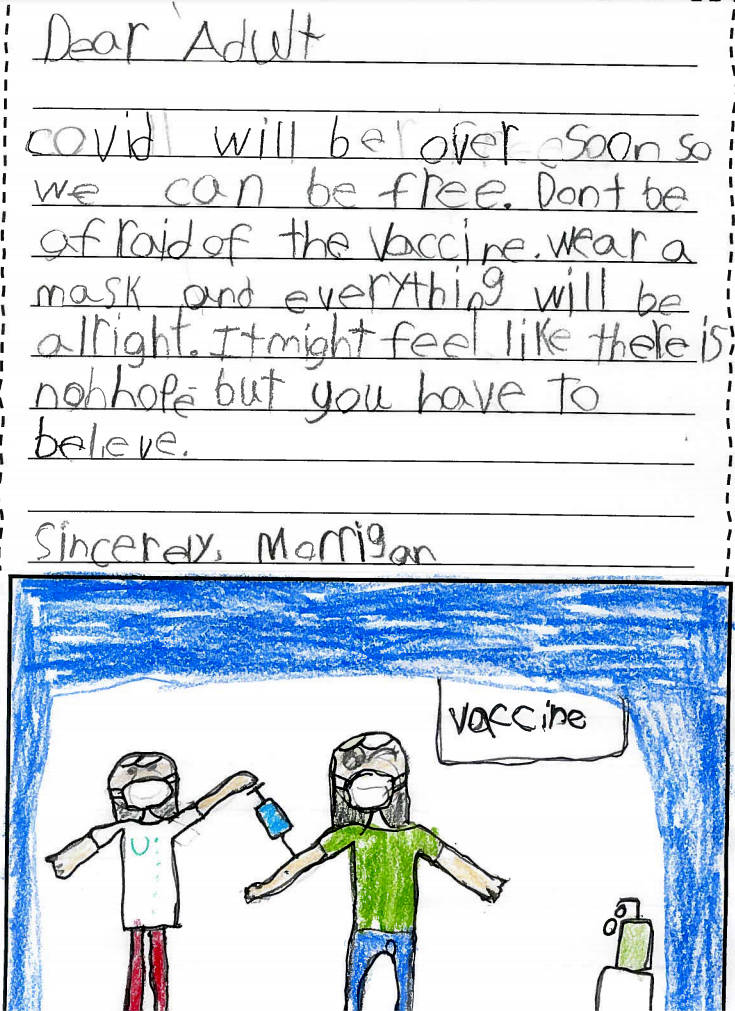 Dear Adult
covid will be over soon so
we can be free. Dont be
afraid of the vaccine. wear a
mask and everything will be
alright. It might feel like there is
nohhope but you have to
beleve.
Sincerely, Morrigan
vaccine